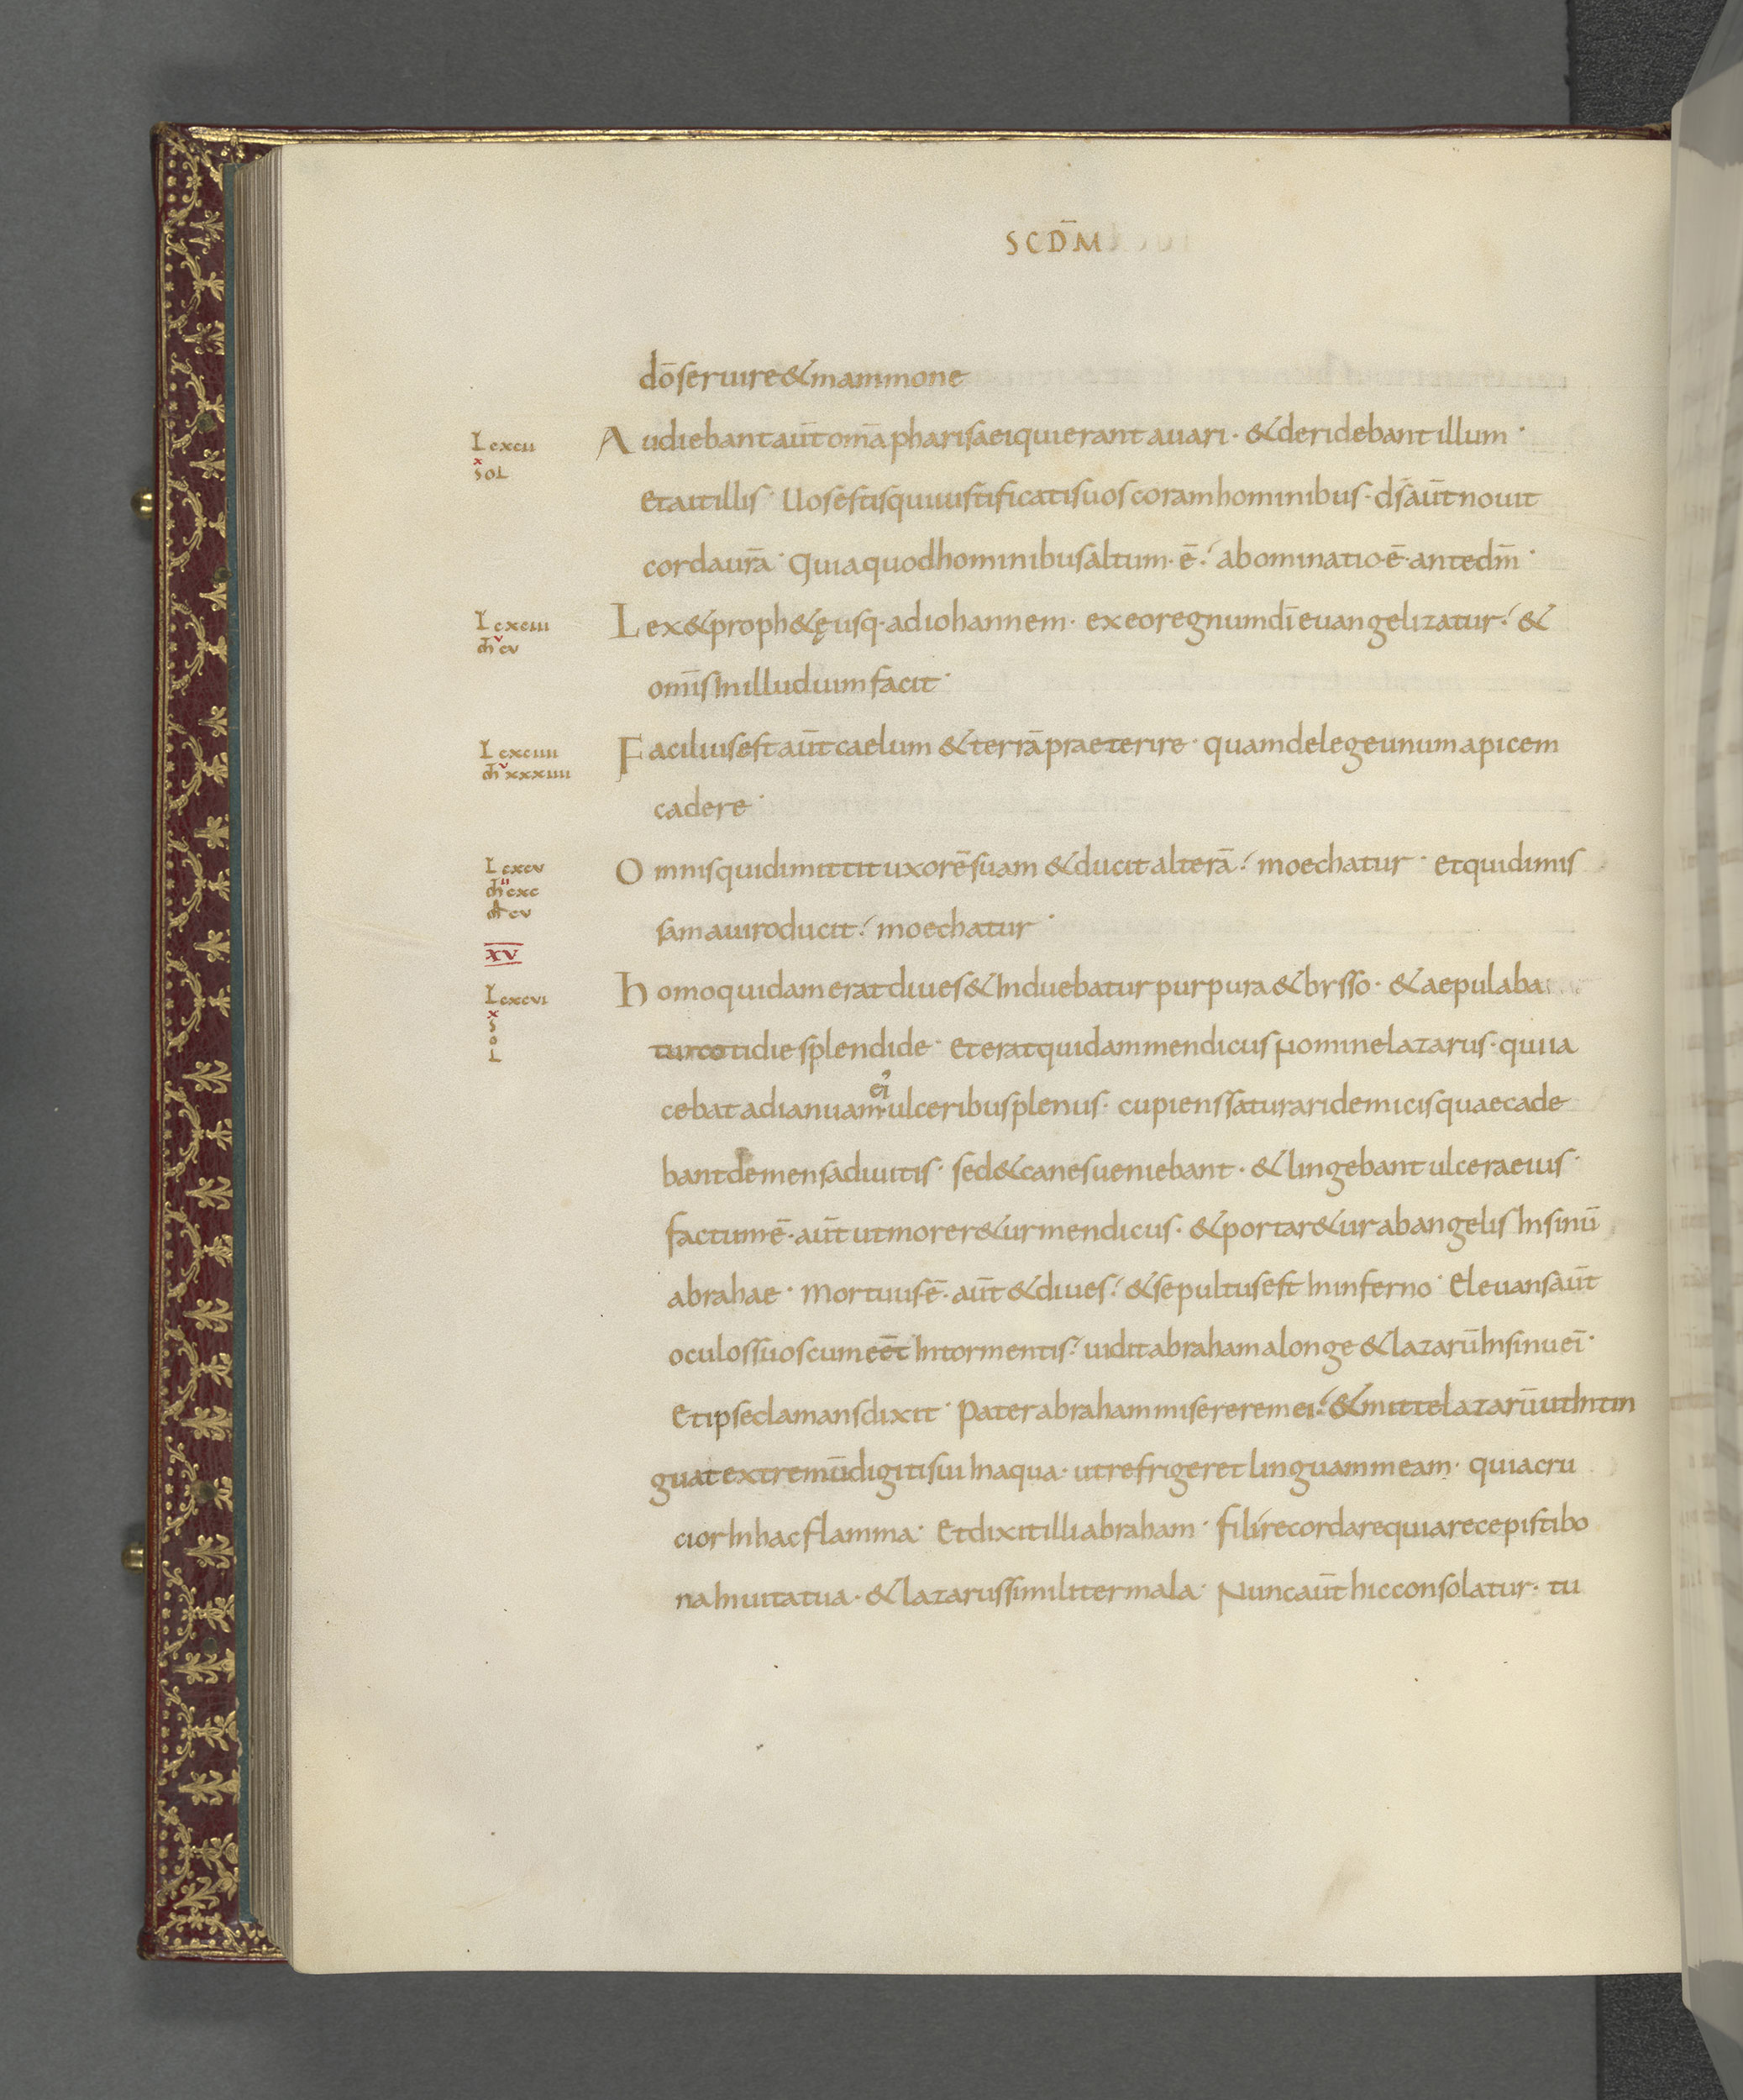 SCD̄M
dō seruire & mammone
L cxcii
x
SOL
Audiebant aūt om̄a pharisaei qui erant auari · & deridebant illum ·
et ait illis · Uos estis qui iustificatis uos coram hominibus · d̄s aūt nouit
corda ur̄a · Quia quod hominibus altum · ē · abominatio · ē · ante dm̄ ·
L cxciii
v
m̄ cv
Lex & proph&ę usq · ad iohannem · ex eo regnum dī euangelizatur · &
om̄is In illud uim facit ·
L cxciiii
v
m̄ xxxiiii
Facilius est aūt caelum & terrā praeterire · quam de lege unum apicem
cadere ·
L cxcv
ii
m̄ cxc
m̄ cv
Omnis qui dimittit uxorē suam & ducit alterā · moechatur · et qui dimis
sam a uiro ducit · moechatur ·
XV
L cxcvi
x
S
O
L
Homo quidam erat diues & Induebatur purpura & bysso · & aepulaba
tur cotidie splendide · et erat quidam mendicus Nomine lazarus · qui ia
ei
cebat ad ianuam · ulceribus plenus · cupiens saturari de micis quae cade
bant de mensa diuitis · sed & canes ueniebant · & lingebant ulcera eius ·
factum ē · aūt ut morer&ur mendicus · & portar&ur ab angelis In sinū
abrahae · Mortuus ē · aūt & diues · & sepultus est In inferno · Eleuans aūt
oculos suos cum eēt In tormentis · uidit abraham a longe & lazarū In sinu eī ·
Et ipse clamans dixit · Pater abraham miserere mei · & mitte lazarū ut Intin
guat extremū digiti sui In aqua · ut refrigeret linguam meam · quia cru
cior In hac flamma · Et dixit illi abraham · fili recordare quia recepisti bo
na In uita tua · & lazarus similiter mala · Nunc aūt hic consolatur · tu